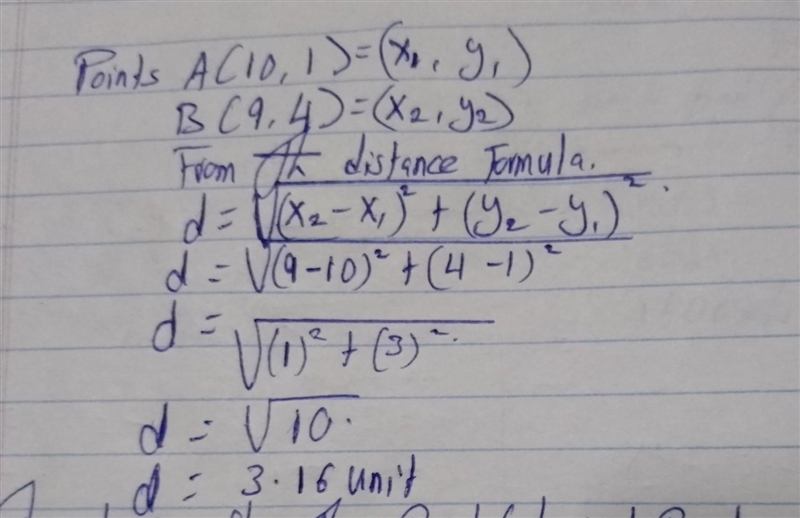 Points A(10, 1) = (x₁, y₁)
B(9, 4) = (x₂, y₂)
From distance Formula.
d = √(x₂ - x₁)² + (y₂ - y₁)².
d = √(9-10)² + (4 - 1)²
d = √(1)² + (3)².
d = √10.
d = 3.16 unit